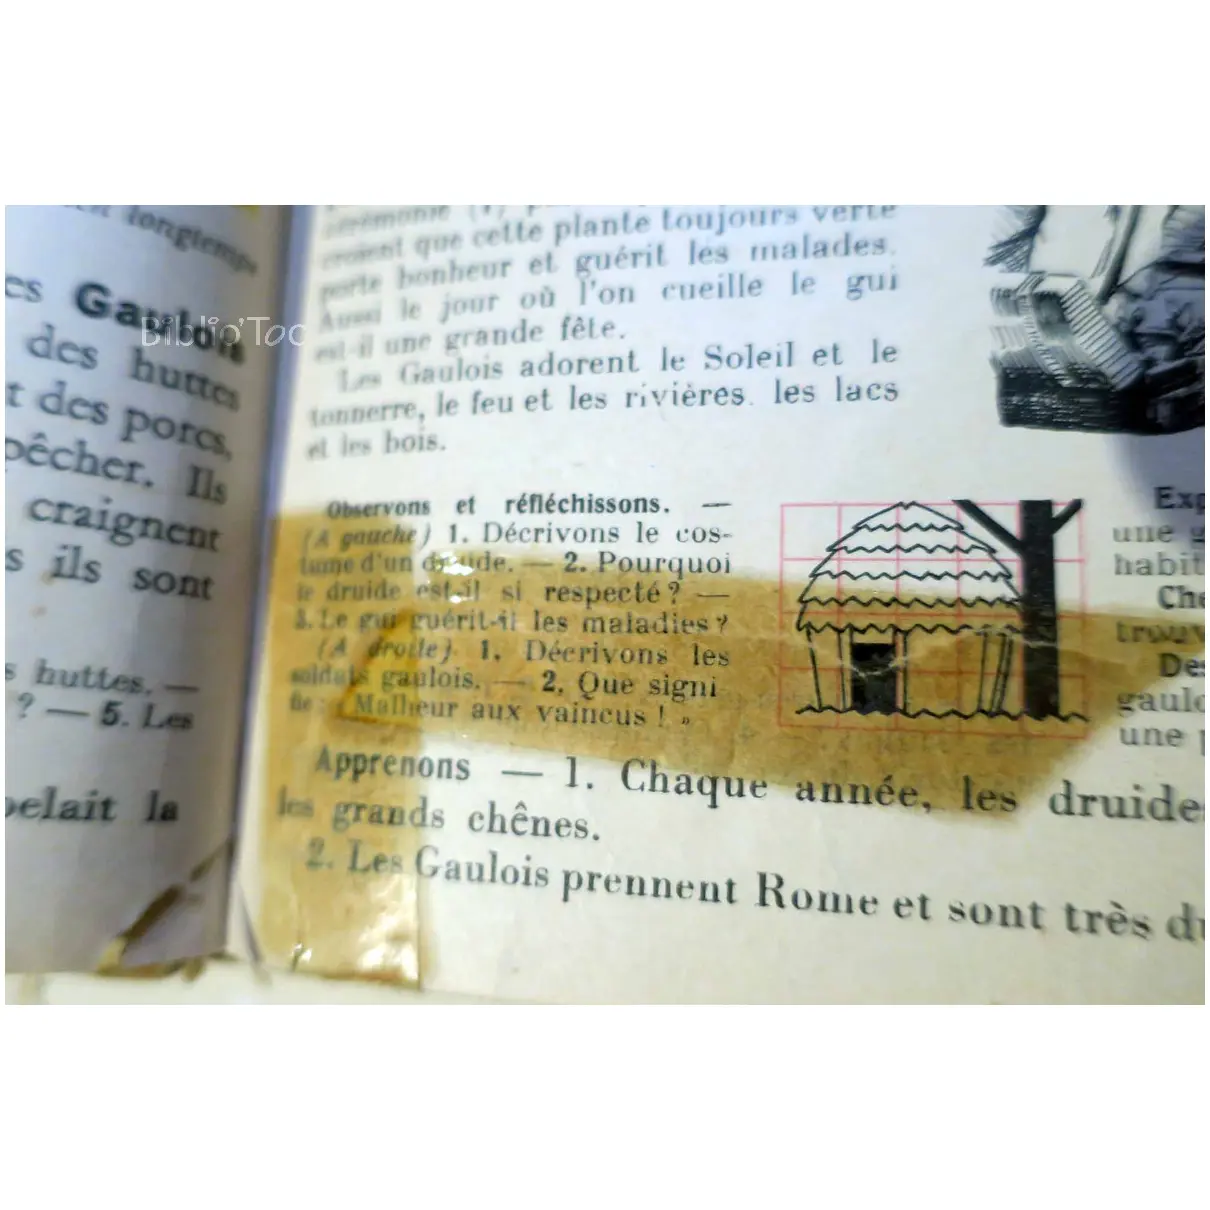 longtemps
es Gaulois
des huttes
t des porcs,
pêcher. Ils
craignent
s ils sont
s huttes. —
? — 5. Les
pelait la
Biblio'Toc
que cette plante toujours verte
porte bonheur et guérit les malades.
Aussi le jour où l'on cueille le gui
est-il une grande fête.
Les Gaulois adorent le Soleil et le
tonnerre, le feu et les rivières. les lacs
et les bois.
Observons et réfléchissons. —
(A gauche) 1. Décrivons le cos-
tume d'un druide. — 2. Pourquoi
le druide est-il si respecté ? —
3. Le gui guérit-il les maladies ?
(A droite) 1. Décrivons les
soldats gaulois. — 2. Que signi
fie : « Malheur aux vaincus ! »
Apprenons — 1. Chaque année, les druides
les grands chênes.
2. Les Gaulois prennent Rome et sont très du
Exp
une g
habit
Che
trouv
Des
gaulo
une p